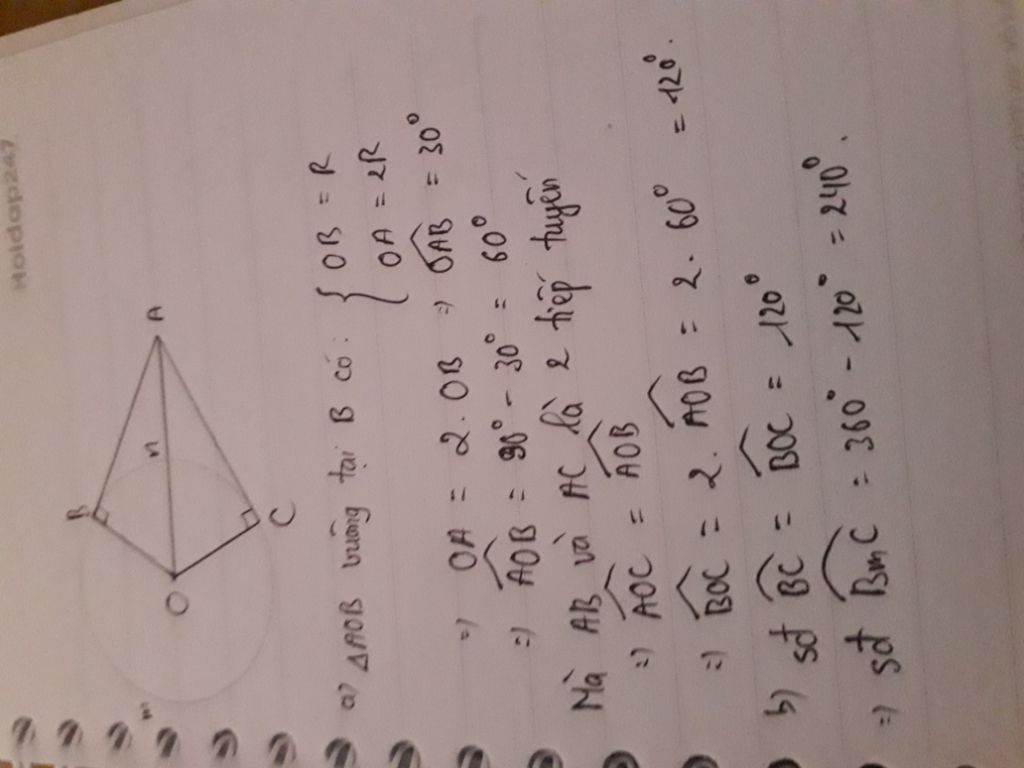 Hoidap247
B
A
n
O
C
m
a) ΔAOB vuông tại B có: { OB = R
OA = 2R
=) OA = 2. OB =) \widehat{OAB} = 30°
=) \widehat{AOB} = 90° - 30° = 60°
Mà AB và AC là 2 tiếp tuyến
=) \widehat{AOC} = \widehat{AOB}
=) \widehat{BOC} = 2. \widehat{AOB} = 2. 60° = 120°.
b) sđ \widehat{BC} = \widehat{BOC} = 120°
=) sđ \widehat{BmC} = 360° - 120° = 240°.